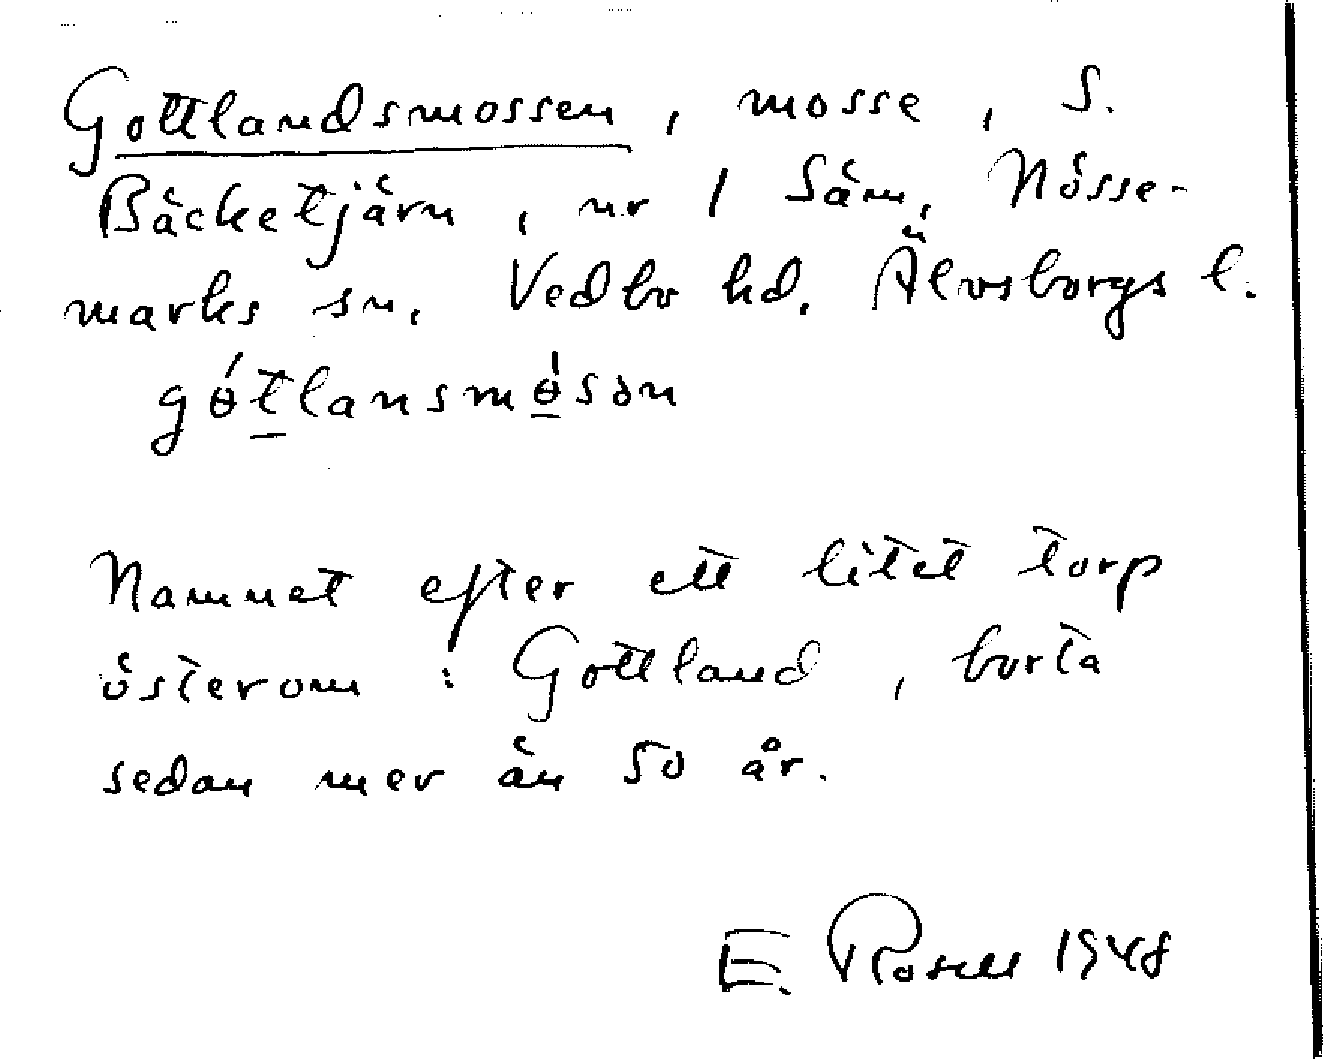 Gottlandsmossen, mosse, S.
Bäcketjärn, nr 1 Säm, Nösse-
marks sn, Vedbo hd. Älvsborgs l.
gɵ́t̲lansmɵ̲́sən
Namnet efter ett litet torp
österom: Gottland, borta
sedan mer än 50 år.
E. Rosell 1948